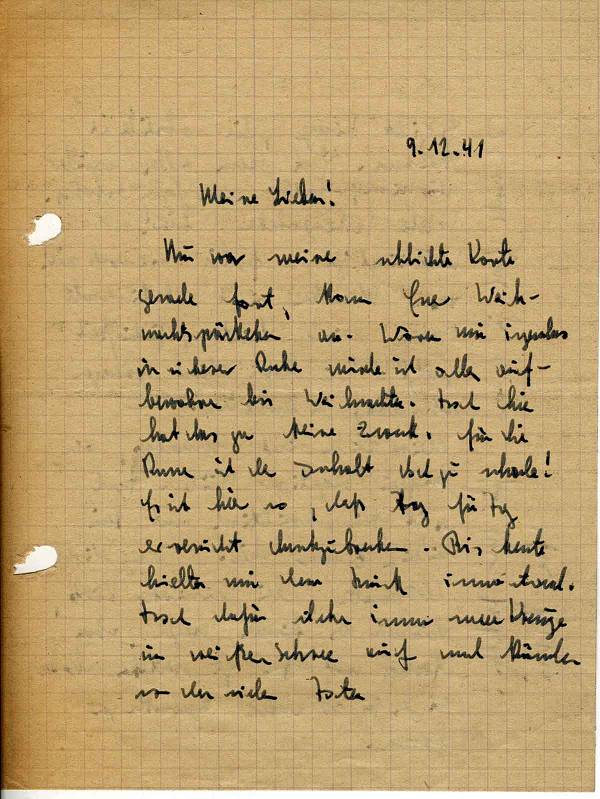 9.12.41
Meine Lieben!
Nun war meine schlichte Karte
gerade fort, kam Euer Weih-
nachtspäckchen an. Wären wir irgendwo
in sicherer Ruhe würde ich alles auf-
bewahren bis Weihnachten. Doch hier
hat das ja keinen Zweck. Für die
Russen ist der Inhalt doch zu schade!
Es ist hier so, daß Tag für Tag
er versucht durchzubrechen. Bis heute
hielten wir dem Druck immer stand.
Doch dafür stehen immer neue Kreuze
im weißen Schnee auf und künden
von den vielen Toten